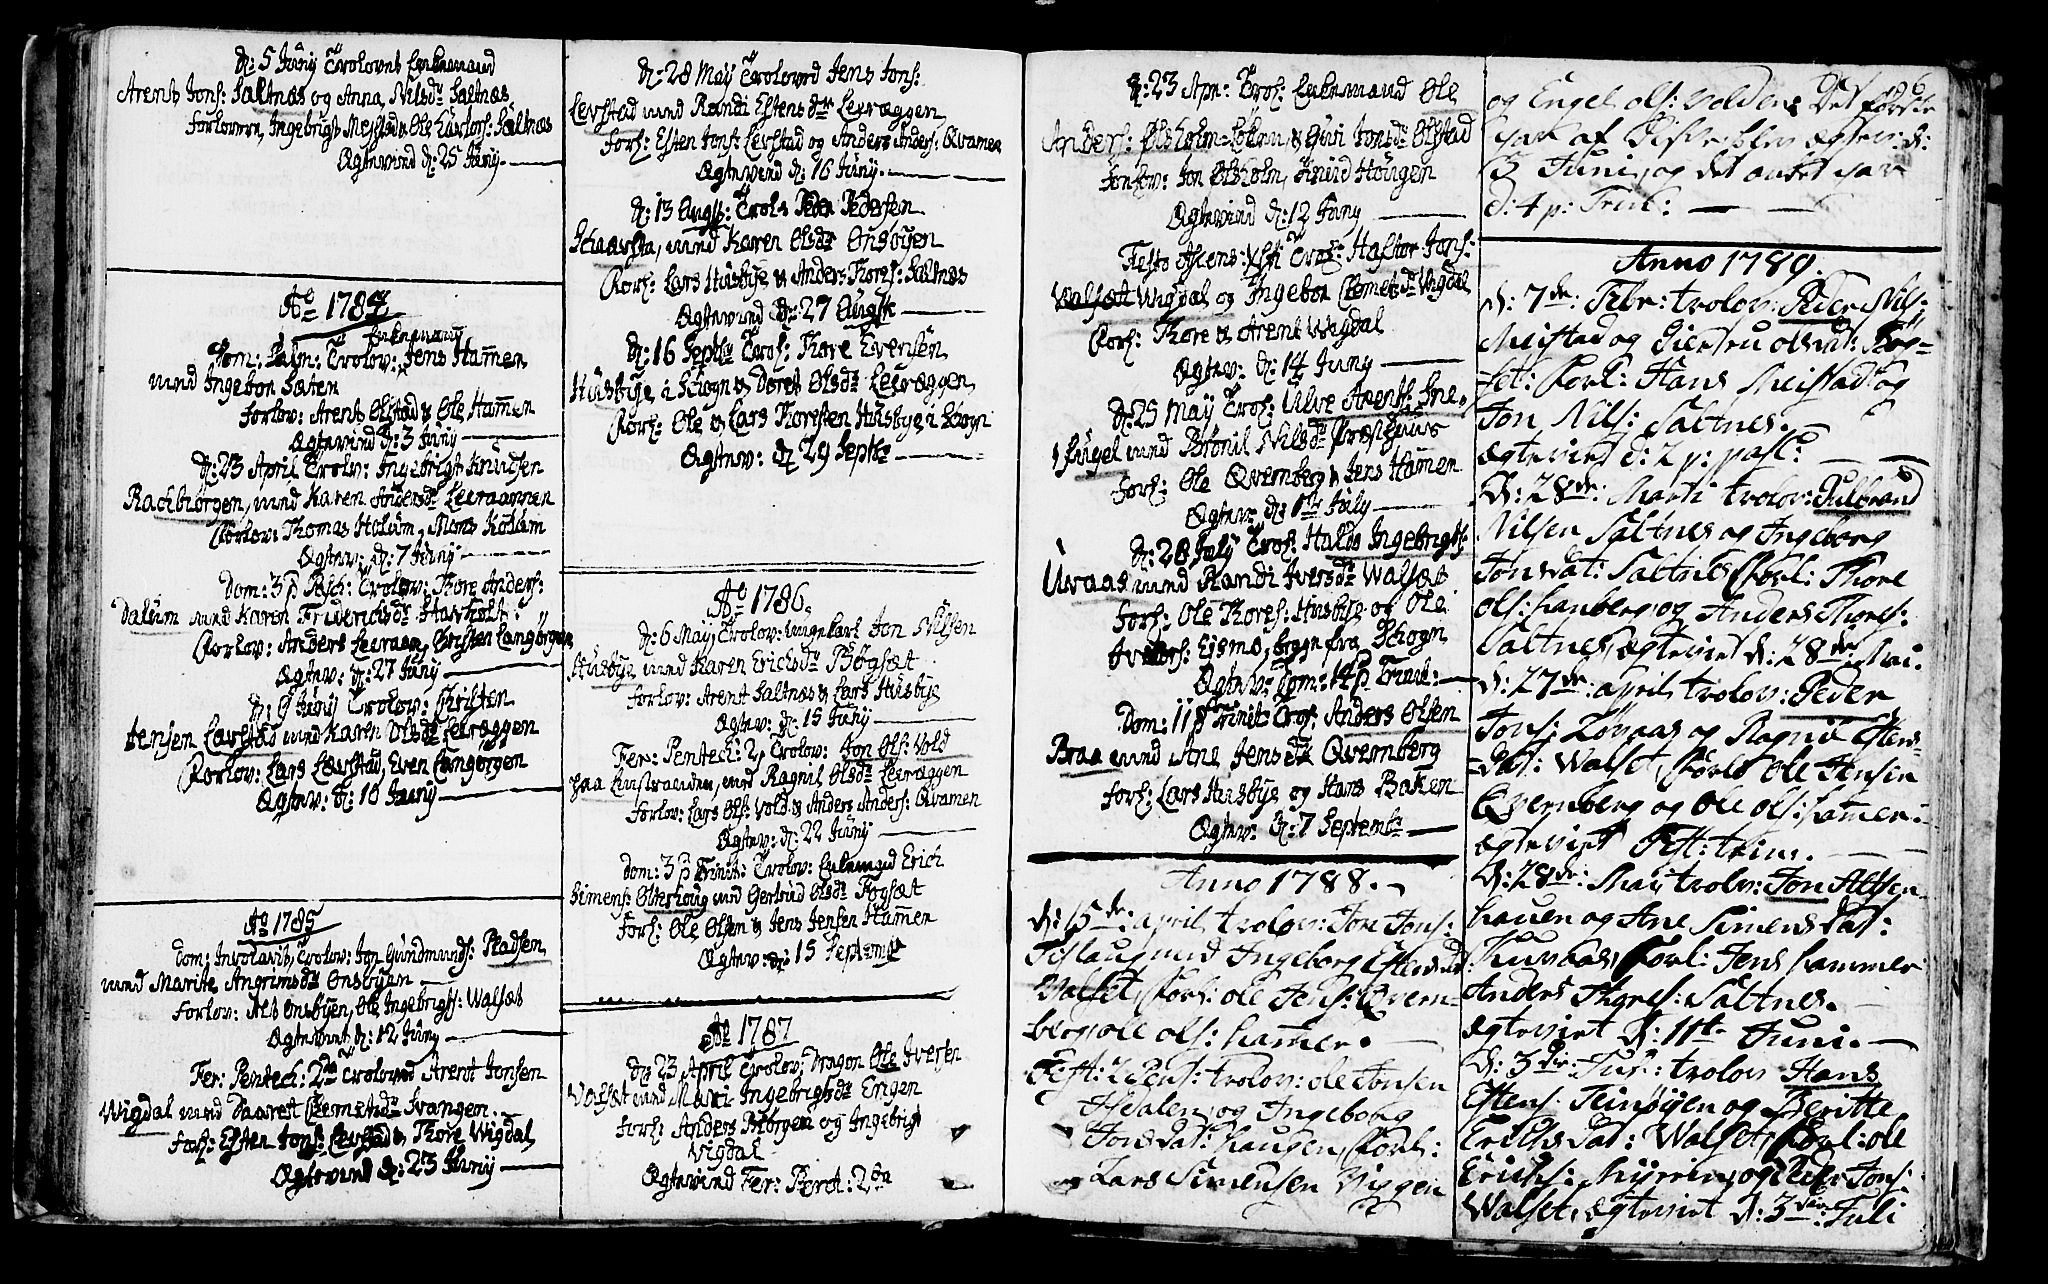 d: 5 Junij Trolovet Enkemand
Arent Jons: Saltnæs og Anna Nilsdr Saltnæs
forlovere, Ingebrigt Mestad & Ole Larsor: Saltnæs
Ægteviend d: 25 Junij
Ao 1784
Enkemand
Dom: Palm: Trolov: Jens Ham̅en
med Ingebor Sæten
forlov: Arent Ølstad & Ole Ham̅en
Ægteviend d: 3 Junij
d: 23 April Trolov: Ingebrigt Knudsen
Rachbiørgen, med Karen Andersdr Leeraannen
forlov: Thomas Holum, Mons Kollum
Ægtev: d: 7 Junij
Dom: 3 p Pasch: Trolov: Thore Anders:
Dalum med Karen Friderichsdr Havfolt
forlov: Anders Leeraan, Christen Langørgen
Ægtev: d: 27 Junij
d: 9 Junij Trolov: Christen
Jensen Løvstad med Karen Olsdr Leeræggen
forlov: Lars Løvstad, Even Langørgen
Ægtev: d: 10 Junij
Ao 1785
Dom: Invocavit, Trolov: Jon Gundmunds: Pladsen
med Marite Angrimsdr Onsøyen
forlov: Nils Onsøyen, Ole Ingebrigts: Walsæt
Ægteviet d: 12 Junij
Fer: Pentech: 2da Troloved Arent Jonsen
Wigdal med Maaret Clemetsdr Svangen.
forl: Esten Jons: Levstad & Thore Wigdal
Ægteviend d: 23 Junij
d: 28 May Troloved Jens Jons:
Levstad med Randi Estensdr Leeræggen
forl: Esten Jons: Levstad og Anders Anders: Qvamen
Ægteviend d: 16 Junij
d: 13 Augst: Trolov Peder Pedersen
Skaarsta, med Karen Olsdr Onsøyen
forl: Lars Husbye & Anders Thores: Saltnæs
Ægteviend d: 27 Augst
d: 16 Septbr Trol: Thore Evensen
Husbye i Schogn & Doret Olsdr Leeræggen
forl: Ole & Lars Thoresten Husbye i Schogn
Ægtev: d 29 Septbr
Ao 1786
d: 6 May Trolov: ungekarl Jon Nilsen
Husbye med Karen Erichsdr Bøgsæt
forlov: Arent Saltnæs & Lars Husbye
Ægtev: d: 15 Junij
Fer: Pentech: 2, Trolov: Jon Ols: Vold
paa med Ragnil Olsdr Leeræggen
forlov: Lars Ols: Vold & Anders Anders: Qvamen
Ægtev: d: 22 Junij
dom: 3 p Trinit: Trolov: Enkemand Erich
Simens: Olteshoug med Gertrud Olsdr Fogsæt
forl: Ole Olsen & Jens Jensen Ham̅er
Ægtev: d: 15 Septembr
Ao 1787
d: 23 April Trolov: Dragon Ole Iversen
Valsæt med Mari Ingebrigtsdr Engen
forl: Anders Biørgen og Ingebrigt
Vigdal
Ægteviend Fer: Pent: 2da
d: 23 Apr: Trol: Enkemand Ole
Anders: Ølsholm & Guri Jonsdr Ølstad
forlov: Jon Ølsholm, Knud Hougen
Ægteviend d: 12 Junij
Festo Ascens: Xsti Trol: Hastor Jons:
Walsæt Wigdal og Ingebor Clemetsdr Wigdal
forl: Thore & Arent Wigdal
Ægtev: d: 14 Junij
d: 25 May Trol: Ulve Arents: Sne-
fugel med Brönil Nilsdr Præsthuus
forl: Ole Qvernberg & Jens Hamen
Ægtev: d: 1ste July
d: 28 July Trol: Haldo Ingebrigts:
Uvaas med Randi Iversdr Walsæt
forl: Ole Thores: Husbye og Ole
Ivers: Eismo, begge fra Schogn
Ægtev: Dom: 14 p Trinit:
Dom: 11 p Trinit: Trol: Anders Olsen
Braa med Ane Jensdr Qvernberg
forl: Lars Husbye og Hans Baken
Ægtev: d: 7 Septembr
Anno 1788.
d: 15de: april trolov: Tore Jons:
Teslaug med Ingeborg Estensd:
Walset, forl: ole Jens: Qvern-
berg, ole ols: ham̅er.
Fest: 2 Pent: trolov: ole Jonsen
Hdalen og Ingeborg
Jonsdat: haugen, forl:
Lars Simensen Wiggen
og Engel ols: Volden, Det første
par af disse blev ægtev: d:
3 Juni, og det andet par
d: 4 p: Trinit:
Anno 1789.
d: 7de: Febr: trolov: Peder Nils:
Meistad og Giertru olsdat: Bog-
set: forl: Hans Meistad og
Jon Nils: Saltnes.
ægteviet d: 2 p: pasc:
d: 28de: Marti trolov: Gulbrand
Nilsen Saltnes og Ingeborg
Jonsdat: Saltnes, forl: Thore
ols: hanberg og Anders Thores:
Saltnes, ægteviet d: 28de: Mai.
d: 27de: april trolov: Peder
Jons: Løvaas og Ragnil Estens-
dat: Walset, forl: Ole Jensen
Qvernberg og ole ols: hamer.
ægteviet Fest: trini.
d: 28de: Maij trolov: Jon Allsen
hauen og Ane Simensdat:
Kuraas, forl: Jens hammer
Anders Thores: Saltnes.
ægteviet d: 11te Juni.
d: 3die: Jul: trolov Hans
Estens: Teinøyen og Beritte
Erichsdat: Walset, forl: ole
Erichs: Myren, og Peder Jons:
Walset, ægteviet d: 3die: Juli